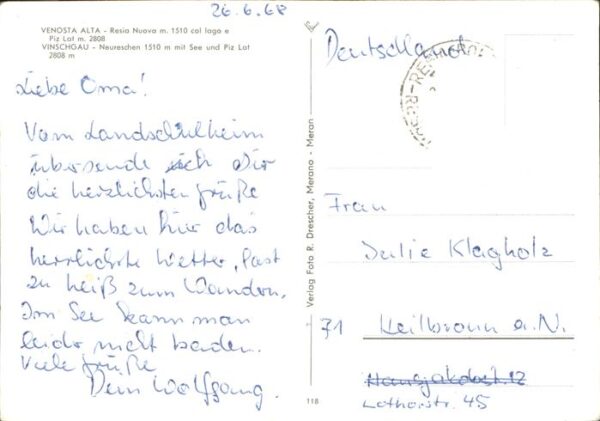 26.6.68
VENOSTA ALTA - Resia Nuova m. 1510 col lago e
Piz Lat m. 2808
VINSCHGAU - Neureschen 1510 m mit See und Piz Lat
2808 m
Liebe Oma!
Vom Landschulheim
übersende ich Dir
die herzlichsten Grüße
Wir haben hier das
herrlichste Wetter, fast
zu heiß zum Wandern.
Im See kann man
leider nicht baden.
Viele Grüße
Dein Wolfgang.
Verlag Foto R. Drescher, Merano - Meran
118
Deutschland
Frau
Julie Klagholz
71 Heilbronn a.N.
Hansjakobst. 12
Lothorstr. 45